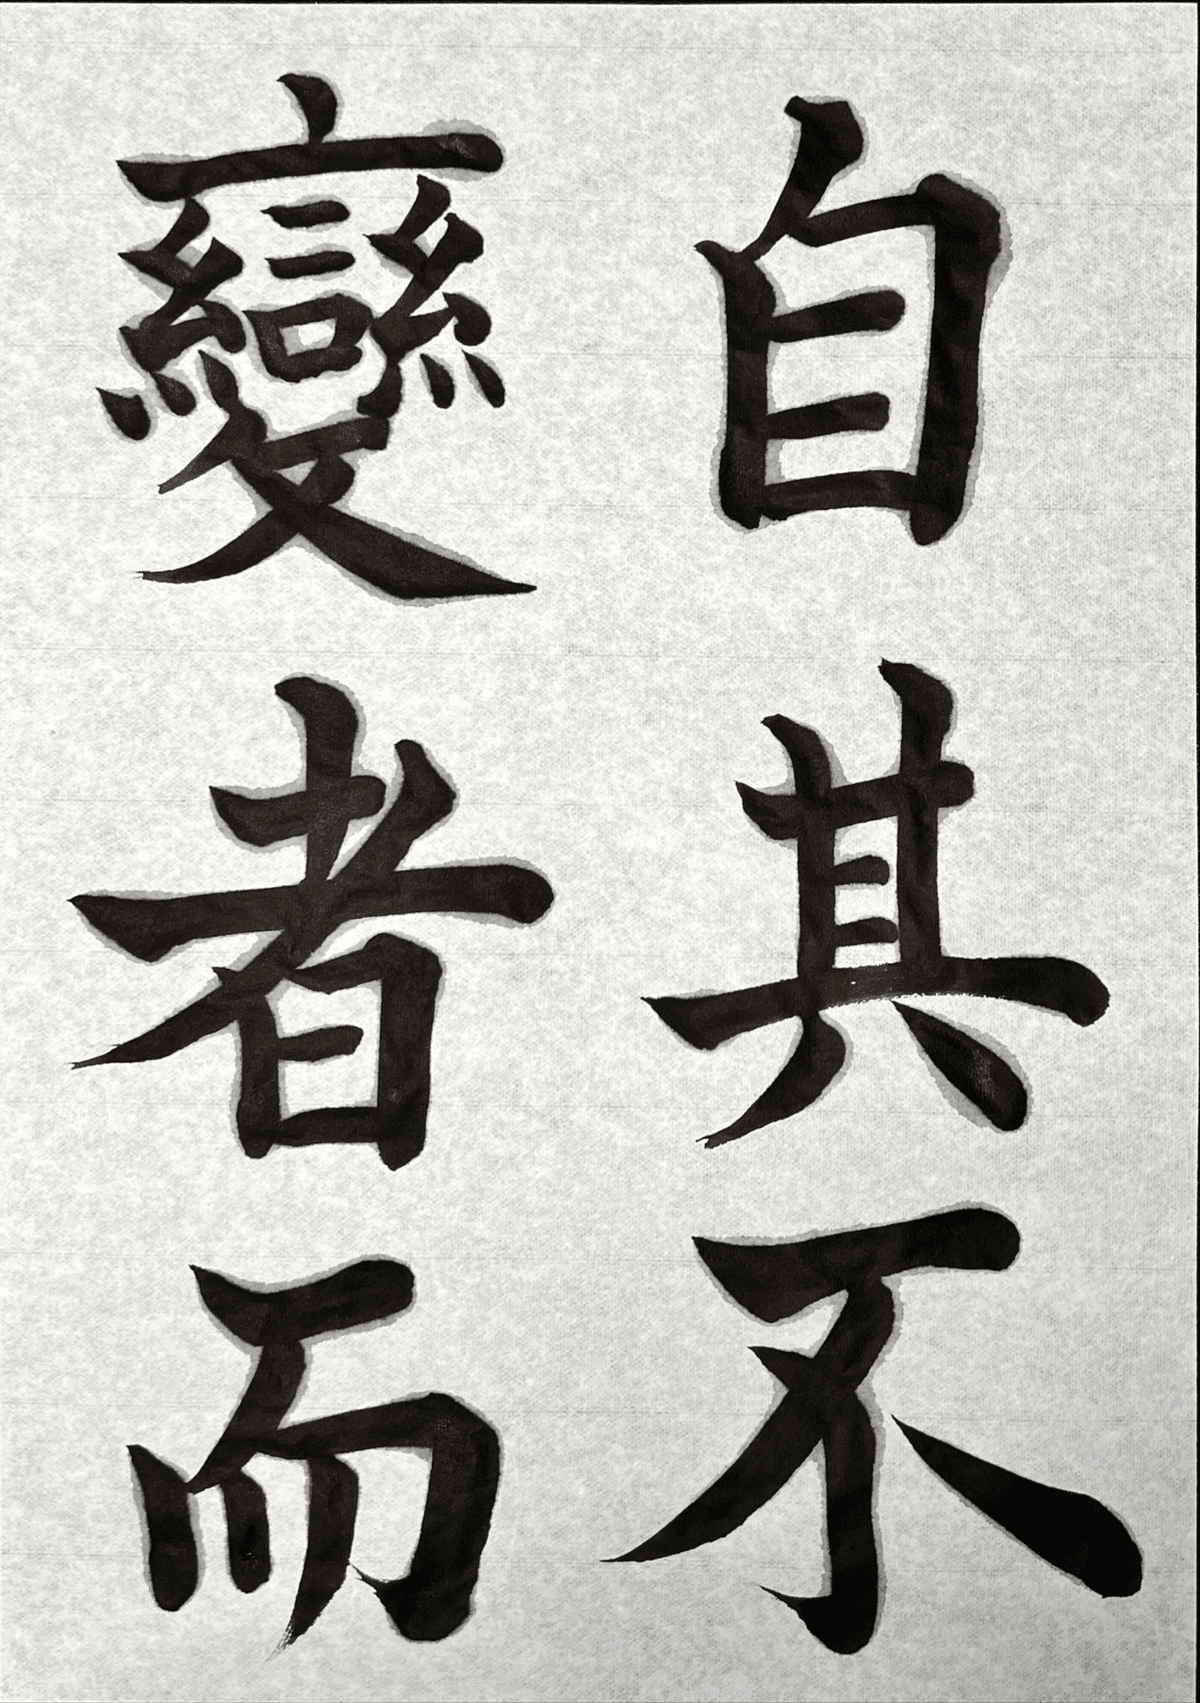 自其不
變者而